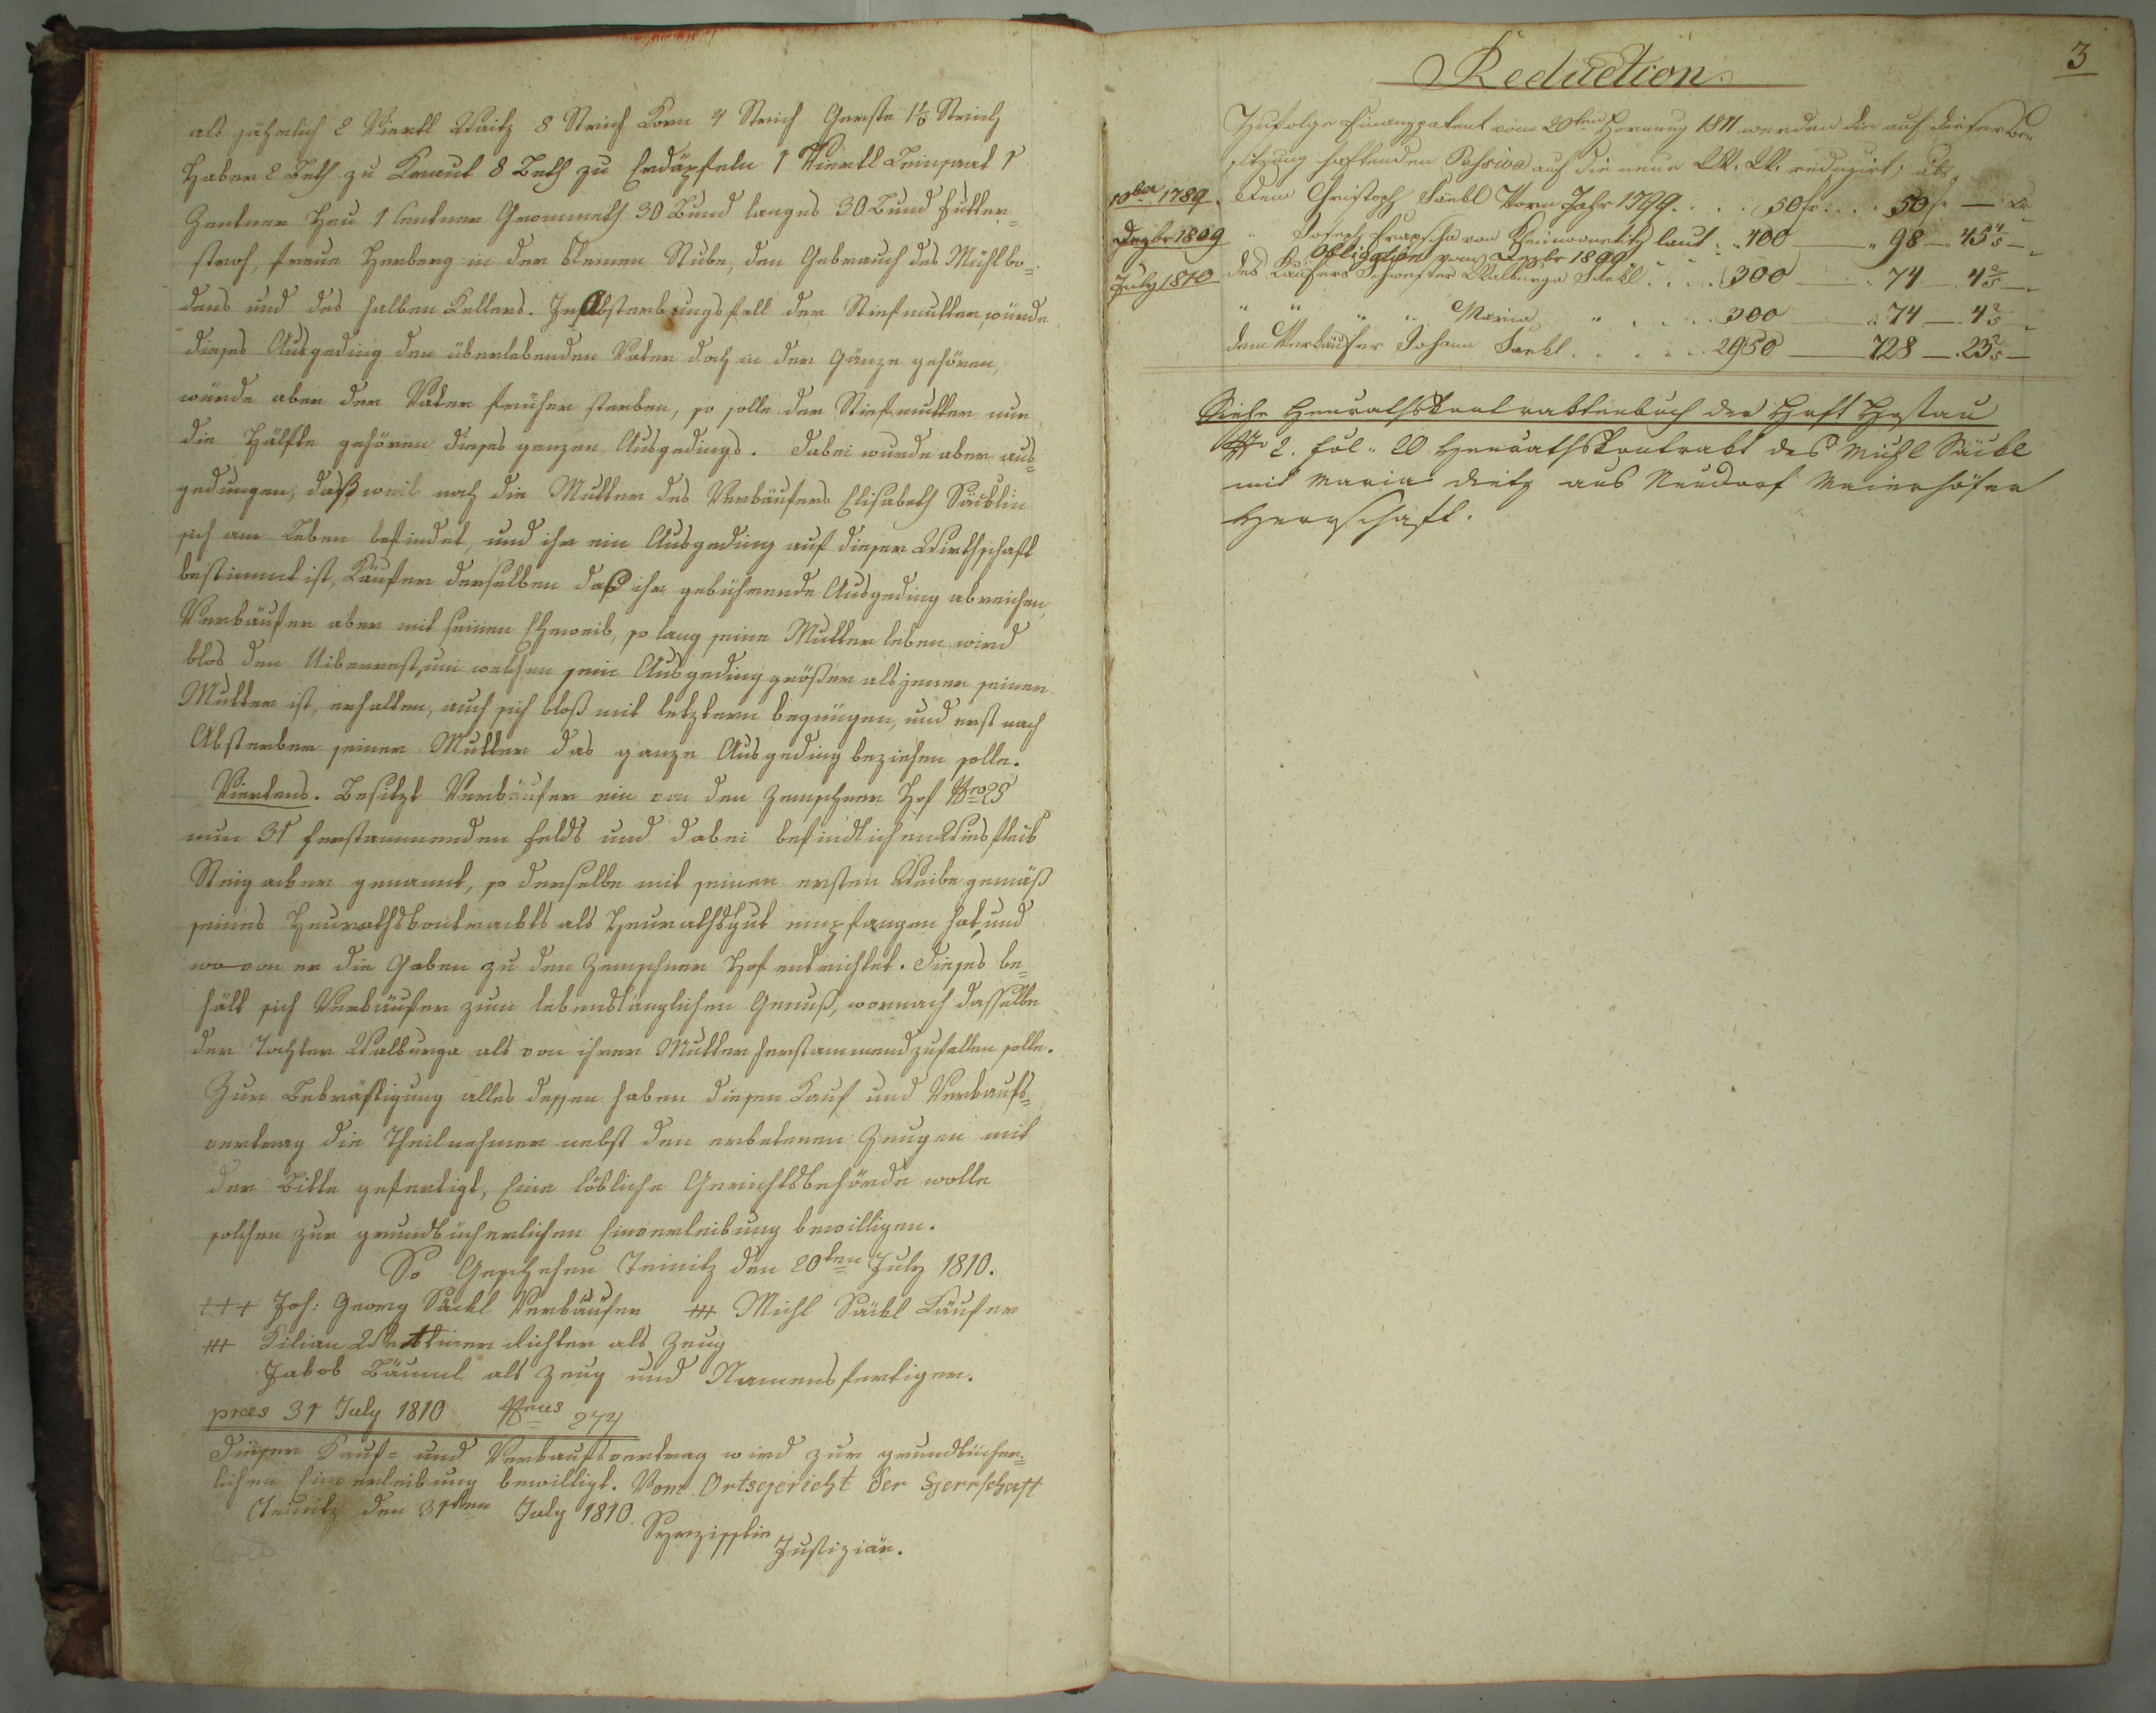 als jährlich 2 Viertl Waitz 8 Strich Korn 4 Strich Gerste 1½ Strich
Haber 2 Beth zu Kraut 8 Beth zu Erdäpfeln 1 Viertl Leinsaat 1
Zentner Heu 1 Centner Grommeth 30 Bund langes 30 Bund Futter=
stroh, freue Herberg in der kleinen Stube, den Gebrauch des Mühlbo=
dens und des halben Kellers. Im Absterbungsfall der Stiefmutter, würde
dieses Ausgeding den überlebenden Vater doch in der Gänze gehören,
würde aber der Vater früher sterben, so solle der Stiefmutter nur
die Hälfte gehören dieses ganzen Ausgedings. Dabei wurde aber aus=
gedungen, daß weil noch die Mutter des Verkäufers Elisabeth Säcklin
sich am Leben befindet, und ihr ein Ausgeding auf dieser Wirthschaft
bestimmt ist, Käufer derselben daß ihr gebührende Ausgeding abreichen,
Verkäufer aber mit seinen Eheweib, so lang seine Mutter leben wird
blos den Uiberrest, um welchen sein Ausgeding größer als jener seiner
Mutter ist, erhalten, auch sich bloß mit letztern begnügen, und erst nach
Absterben seiner Mutter das ganze Ausgeding beziehen solle.
Viertens. Besitzt Verkäufer ein von den Zemschner Hof Nro 25
nun 31 herstammenden Felds und dabei befindlichen Wiesfleck
Steigacker genannt, so derselbe mit seinen ersten Weibe gemäß
seines Heurathskontrackts als Heurathsgut empfangen hat, und
wo von er die Gaben zu den Zemschner Hof entrichtet. Dieses be=
hält sich Verkäufer zum lebenslänglichen Genuß, wornach dasselbe
der Tochter Walburga als von ihrer Mutter herstammend zufallen solle.
Zur Bekräftigung alles dessen haben diesen Kauf und Verkaufs=
vertrag die Theilnehmer nebst den erbetenen Zeugen mit
der Bitte gefertigt, Eine löbliche Gerichtsbehörde wolle
solchen zur grundbücherlichen Einverleibung bewilligen.
So Geschehen Teinitz den 20ten July 1810.
+++ Joh: Georg Säckl Verkäufer +++ Michl Säckl Käufer
+++ Kilian Richter als Zeug
Jakob Bäuml als Zeug und Namensfertiger.
præs 31 July 1810 Nrus 274
Dieser Kauf= und Verkaufsvertrag wird zur grundbücher=
lichen Einverleibung bewilligt. Vom Ortsgericht der Herrschaft
Teinitz den 31ten July 1810.
Justiziär.
3
Reduction.
Zufolge Finanzpatent vom 20ten Hornung 1811 werden die auf dieser Be
sitzung haftenden Passiva auf die neue W. W. reduzirt; als,
10ber 1789. dem Christoph Säckl Vom Jahr 1789. . . . 50 fr . . . 50 fr —
Dezbr 1809 " Joseph von laut . . 400 — " 98 — 45 4/5 —
Obligation vom Dezbr 1809
July 1810 des Käufers Schwester Walburga Säckl . . . . 300 — . 74 — 4 2/5 —
" " " " Maria " . . . . 300 — " 74 — 4 2/5 "
dem Verkäufer Johann Säckl . . . . . 2950 — 728 — 23 2/5 —
Siehe Heurathskontraktenbuch der Hrft Hostau
Nro 2. Fol. 20 Heurathskontrakt des Michl Säckl
mit Maria Dietz aus Neudorf Maierhöfer
Herrschaft.